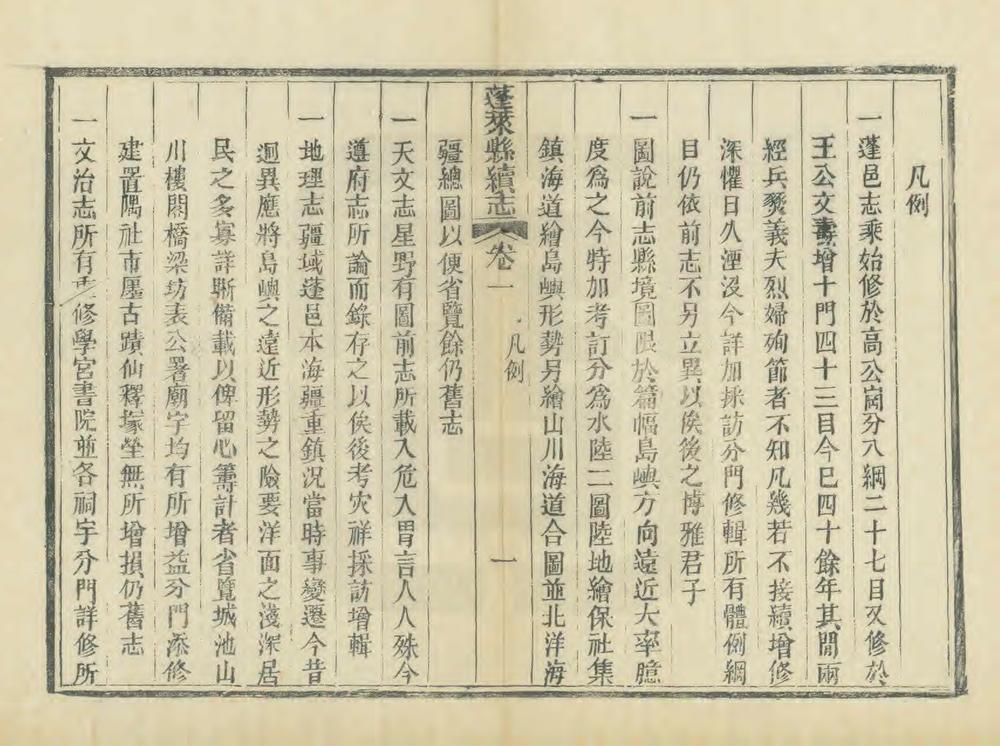 凡例
一蓬邑志乘始修於高公崗分八綱二十七目又修於
王公文燾增十門四十三目今已四十餘年其閒兩
經兵燹義夫烈婦殉節者不知凡幾若不接續增修
深懼日久湮沒今詳加採訪分門修輯所有體例綱
目仍依前志不另立異以俟後之博雅君子
一圖說前志縣境圖限於篇幅島嶼方向遠近大率臆
度為之今特加考訂分為水陸二圖陸地繪保社集
鎮海道繪島嶼形勢另繪山川海道合圖並北洋海
疆總圖以便省覽餘仍舊志
蓬萊縣續志 卷一 凡例 一
一天文志星野有圖前志所載入危入胃言人人殊今
遵府志所論而錄存之以俟後考灾祥採訪增輯
一地理志疆域蓬邑本海疆重鎮況當時事變遷今昔
迥異應將島嶼之遠近形勢之險要洋面之淺深居
民之多寡詳晰備載以俾留心籌計者省覽城池山
川樓閣橋梁坊表公署廟宇均有所增益分門添修
建置隅社市廛古蹟仙釋塚塋無所增損仍舊志
一文治志所有重修學宮書院並各祠宇分門詳修所